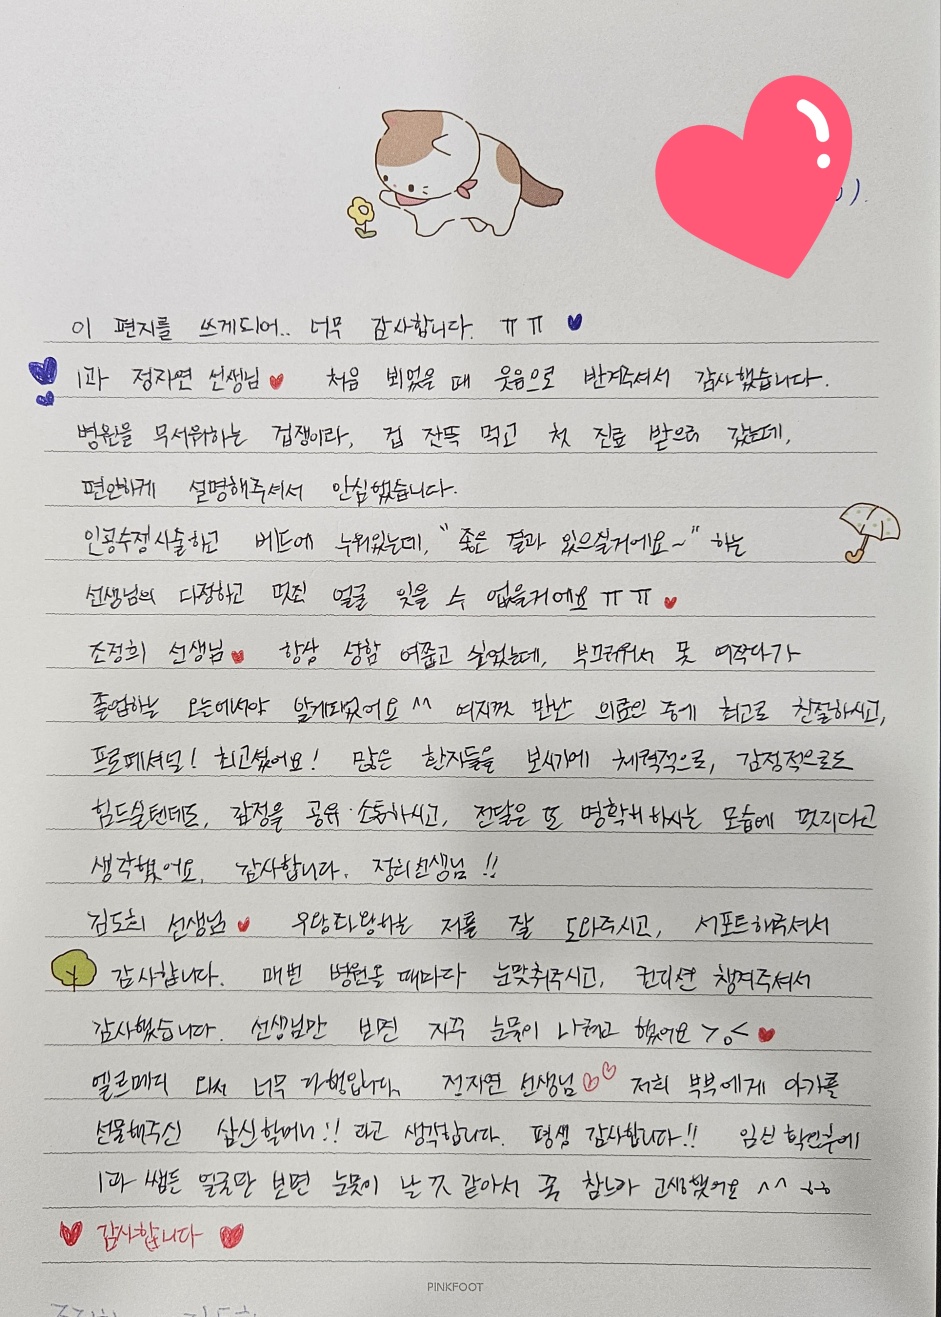 이 편지를 쓰게되어.. 너무 감사합니다. ㅠㅠ
1과 정자연 선생님 처음 뵈었을 때 웃음으로 반겨주셔서 감사했습니다.
병원을 무서워하는 겁쟁이라, 겁 잔뜩 먹고 첫 진료 받으러 갔는데,
편안하게 설명해주셔서 안심했습니다.
인공수정시술하고 베드에 누워있는데, "좋은 결과 있으실거에요~" 하는
선생님의 다정하고 멋진 얼굴 잊을 수 없을거에요 ㅠㅠ
조정희 선생님 항상 성함 여쭙고 싶었는데, 부끄러워서 못 여쭈다가
졸업하는 오늘에서야 알게되었어요 ^^ 여지껏 만난 의료인 중에 최고로 친절하시고,
프로페셔널! 최고셨어요! 많은 환자들을 보시기에 체력적으로, 감정적으로도
힘드실텐데도, 감정을 공유·소통하시고, 전달은 또 명확히 하시는 모습에 멋지다고
생각했어요. 감사합니다. 정희선생님!!
김도희 선생님 우왕좌왕하는 저를 잘 도와주시고, 서포트해주셔서
감사합니다. 매번 병원올 때마다 눈맞춰주시고, 컨디션 챙겨주셔서
감사했습니다. 선생님만 보면 자꾸 눈물이 나려고 했어요 >.<
엘르메디 와서 너무 다행입니다. 전자연 선생님 저희 부부에게 아가를
선물해주신 삼신할머니!! 라고 생각합니다. 평생 감사합니다!! 임신 확인후에
1과 쌤들 얼굴만 보면 눈물이 날 것 같아서 꾹 참느라 고생했어요 ^^ ㅎㅎ
감사합니다
PINKFOOT